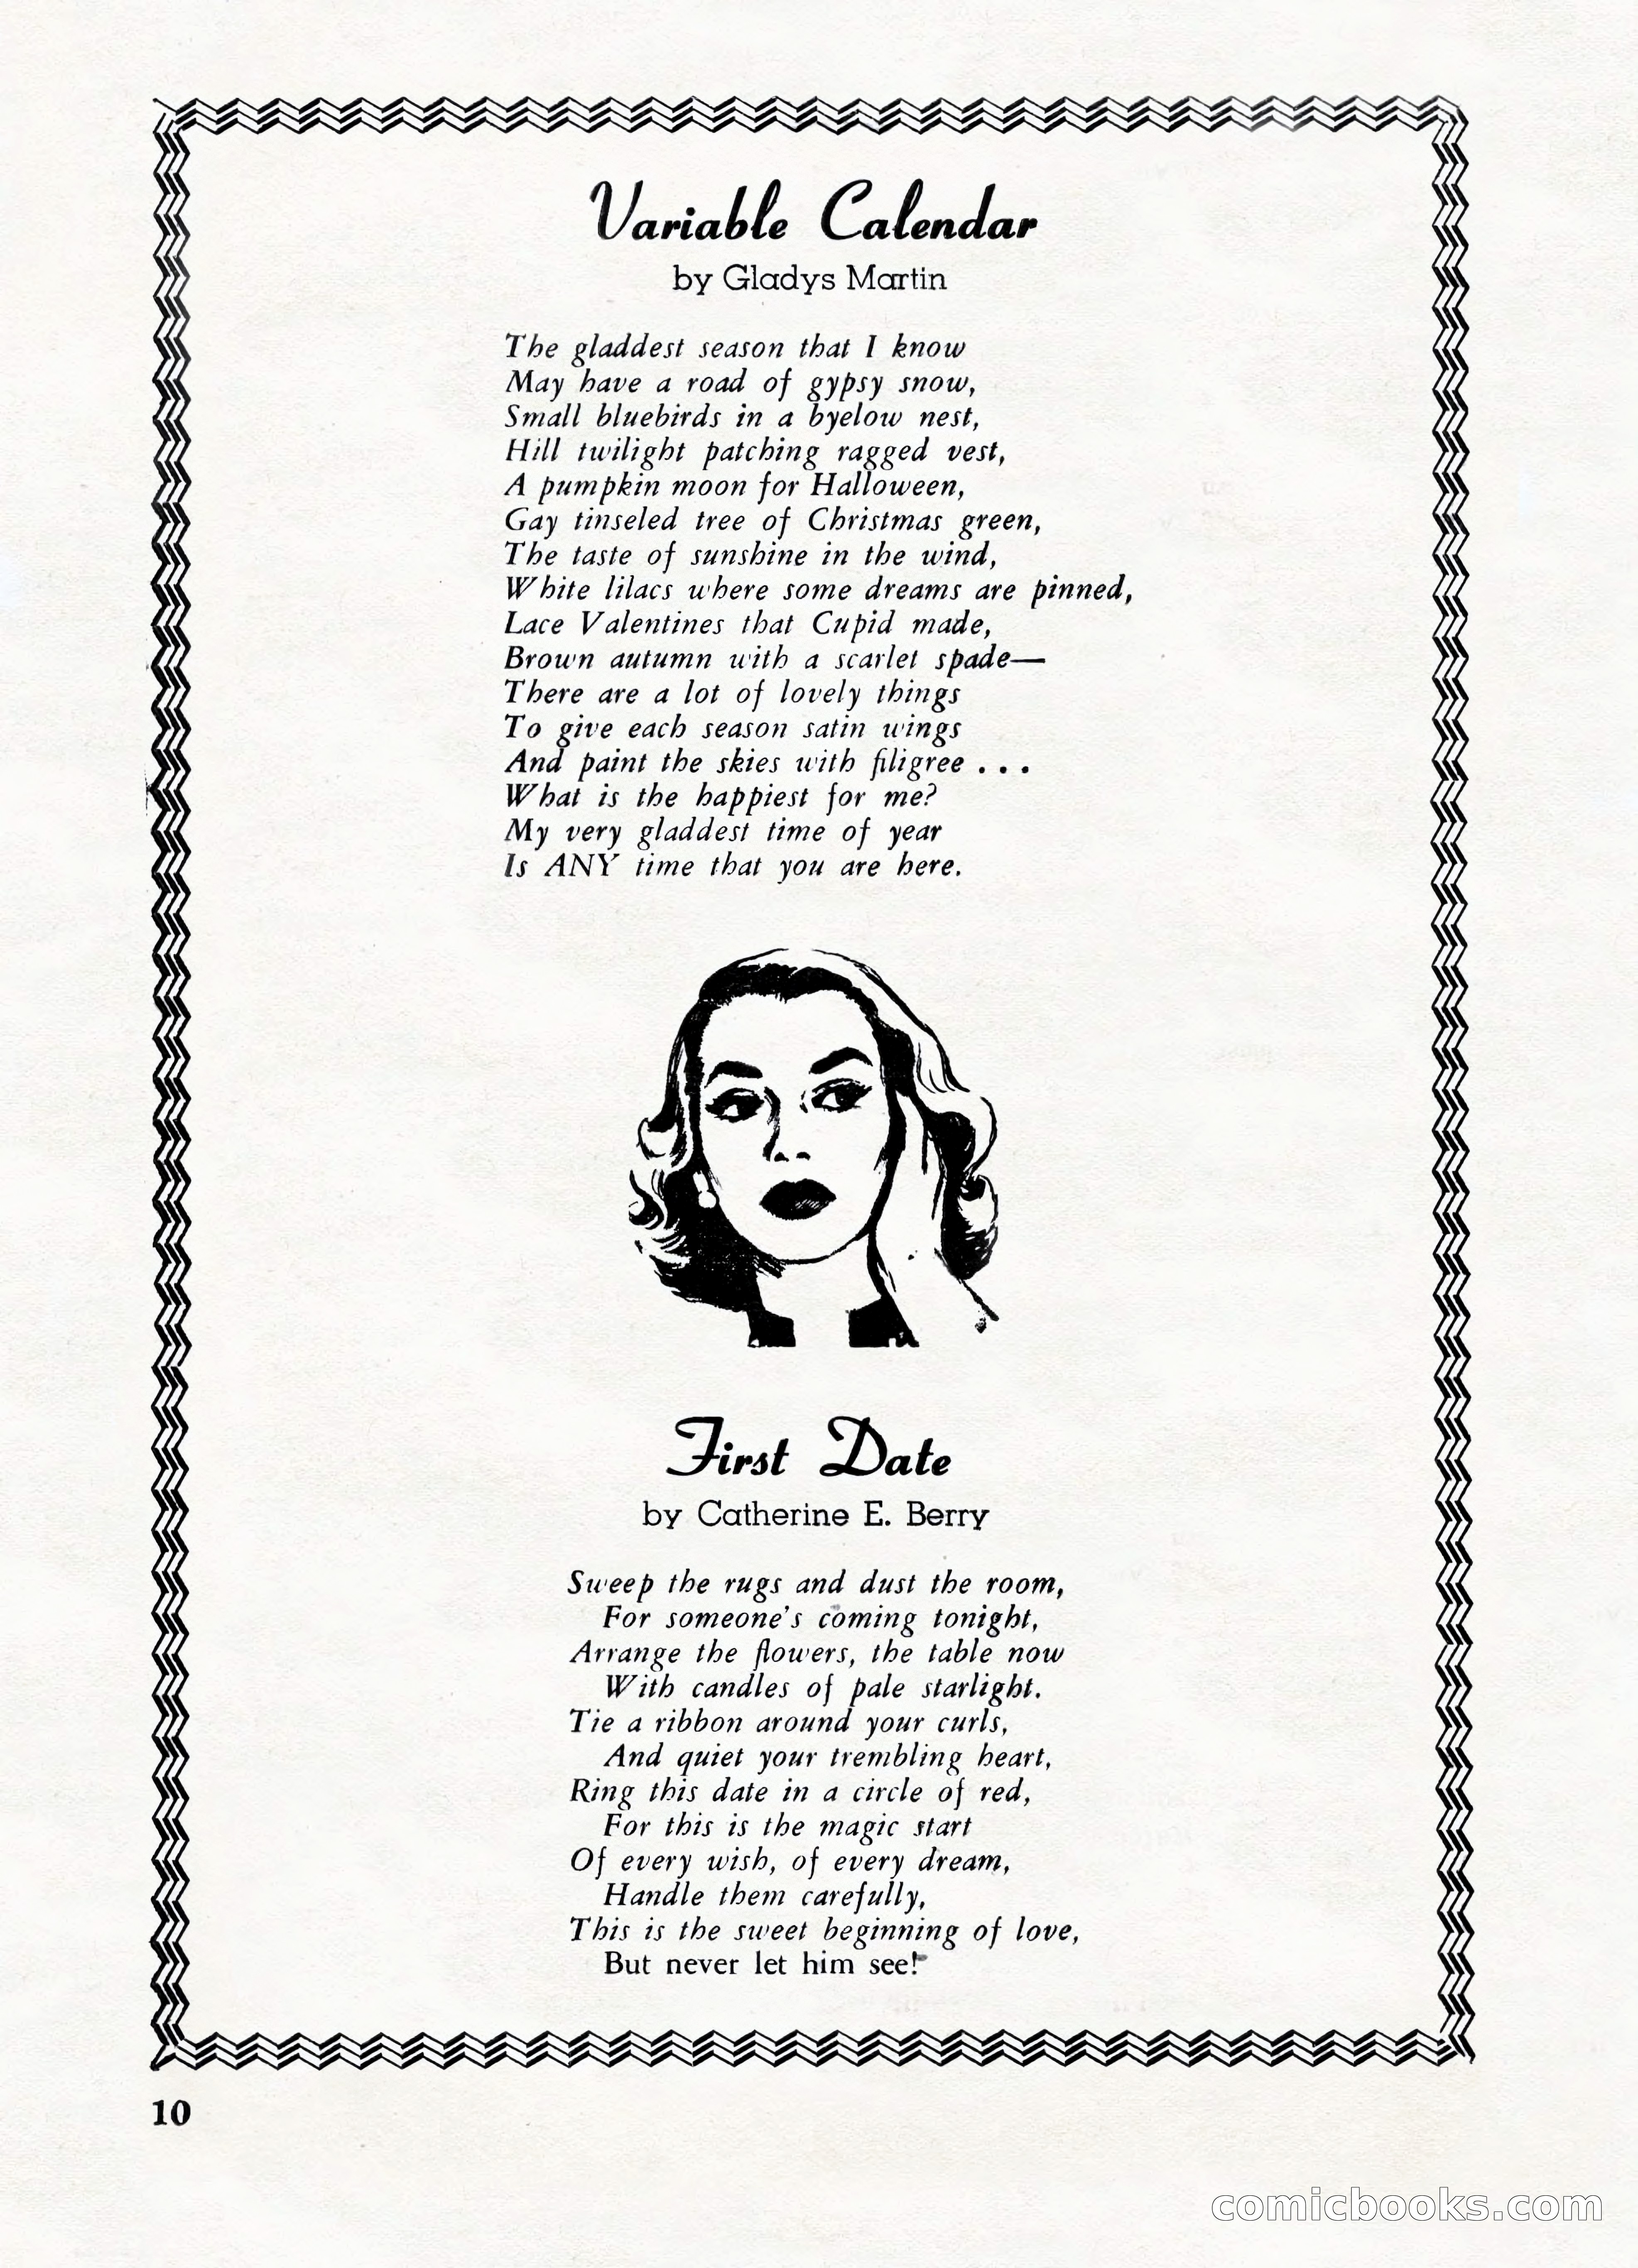 Variable Calendar
by Gladys Martin
The gladdest season that I know
May have a road of gypsy snow,
Small bluebirds in a byelow nest,
Hill twilight patching ragged vest,
A pumpkin moon for Halloween,
Gay tinseled tree of Christmas green,
The taste of sunshine in the wind,
White lilacs where some dreams are pinned,
Lace Valentines that Cupid made,
Brown autumn with a scarlet spade—
There are a lot of lovely things
To give each season satin wings
And paint the skies with filigree . . .
What is the happiest for me?
My very gladdest time of year
Is ANY time that you are here.
First Date
by Catherine E. Berry
Sweep the rugs and dust the room,
For someone's coming tonight,
Arrange the flowers, the table now
With candles of pale starlight.
Tie a ribbon around your curls,
And quiet your trembling heart,
Ring this date in a circle of red,
For this is the magic start
Of every wish, of every dream,
Handle them carefully,
This is the sweet beginning of love,
But never let him see!
10
comicbooks.com